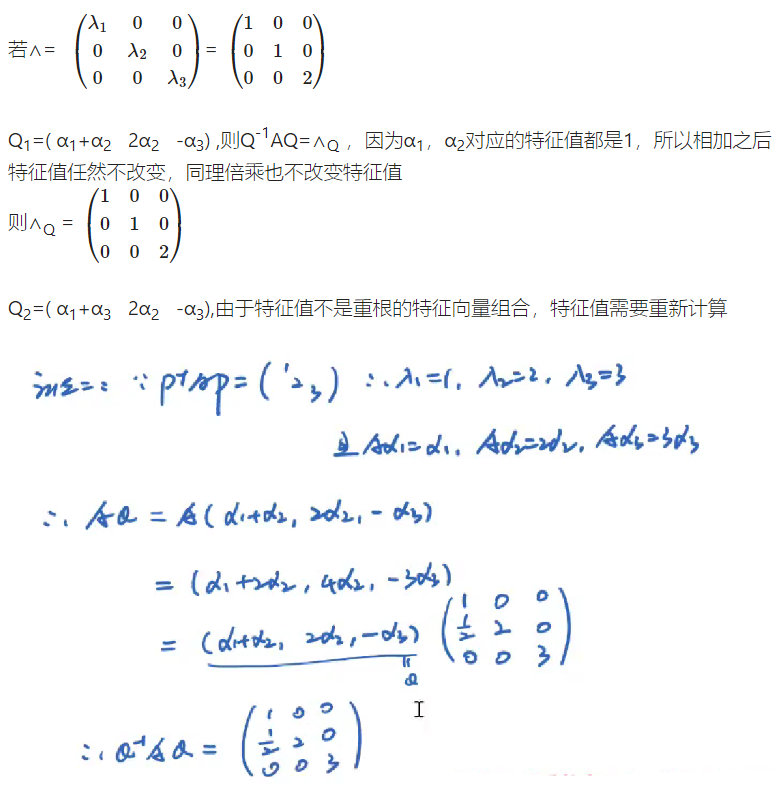 若∧= (λ₁ 0 0; 0 λ₂ 0; 0 0 λ₃) = (1 0 0; 0 1 0; 0 0 2)
Q₁=( α₁+α₂ 2α₂ -α₃) ,则Q⁻¹AQ=∧Q ，因为α₁，α₂对应的特征值都是1，所以相加之后
特征值任然不改变，同理倍乘也不改变特征值
则∧Q = (1 0 0; 0 1 0; 0 0 2)
Q₂=( α₁+α₃ 2α₂ -α₃),由于特征值不是重根的特征向量组合，特征值需要重新计算
法二: ∵ P⁻¹AP = (1 2 3) ∴ λ₁=1, λ₂=2, λ₃=3
且 Aα₁=α₁, Aα₂=2α₂, Aα₃=3α₃
∴ AQ = A(α₁+α₂, 2α₂, -α₃)
= (α₁+2α₂, 4α₂, -3α₃)
= (α₁+α₂, 2α₂, -α₃) (1 0 0; 1/2 2 0; 0 0 3)
Q
∴ Q⁻¹AQ = (1 0 0; 1/2 2 0; 0 0 3)